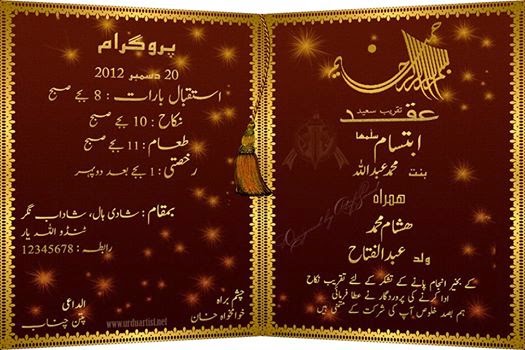 بسم الله الرحمن الرحیم
تقریب سعید
عقد
ابتسام سلمہا
بنت محمد عبداللہ
ہمراہ
ہشام محمد
ولد عبدالفتاح
کے بخیر انجام پانے کے تشکر کے لئے تقریب نکاح
ادا کرنے کی پروردگار نے عطا فرمائی
ہم بصد خلوص آپ کی شرکت کے متمنی ہیں
پروگرام
20 دسمبر 2012
استقبال بارات : 8 بجے صبح
نکاح : 10 بجے صبح
طعام : 11 بجے صبح
رخصتی : 1 بجے بعد دوپہر
بمقام : شادی ہال، شاداب نگر
ٹنڈو اللہ یار
رابطہ : 12345678
چشم براہ
خوانخواہ خان
الداعی
پٹن چناب
www.urduartist.net